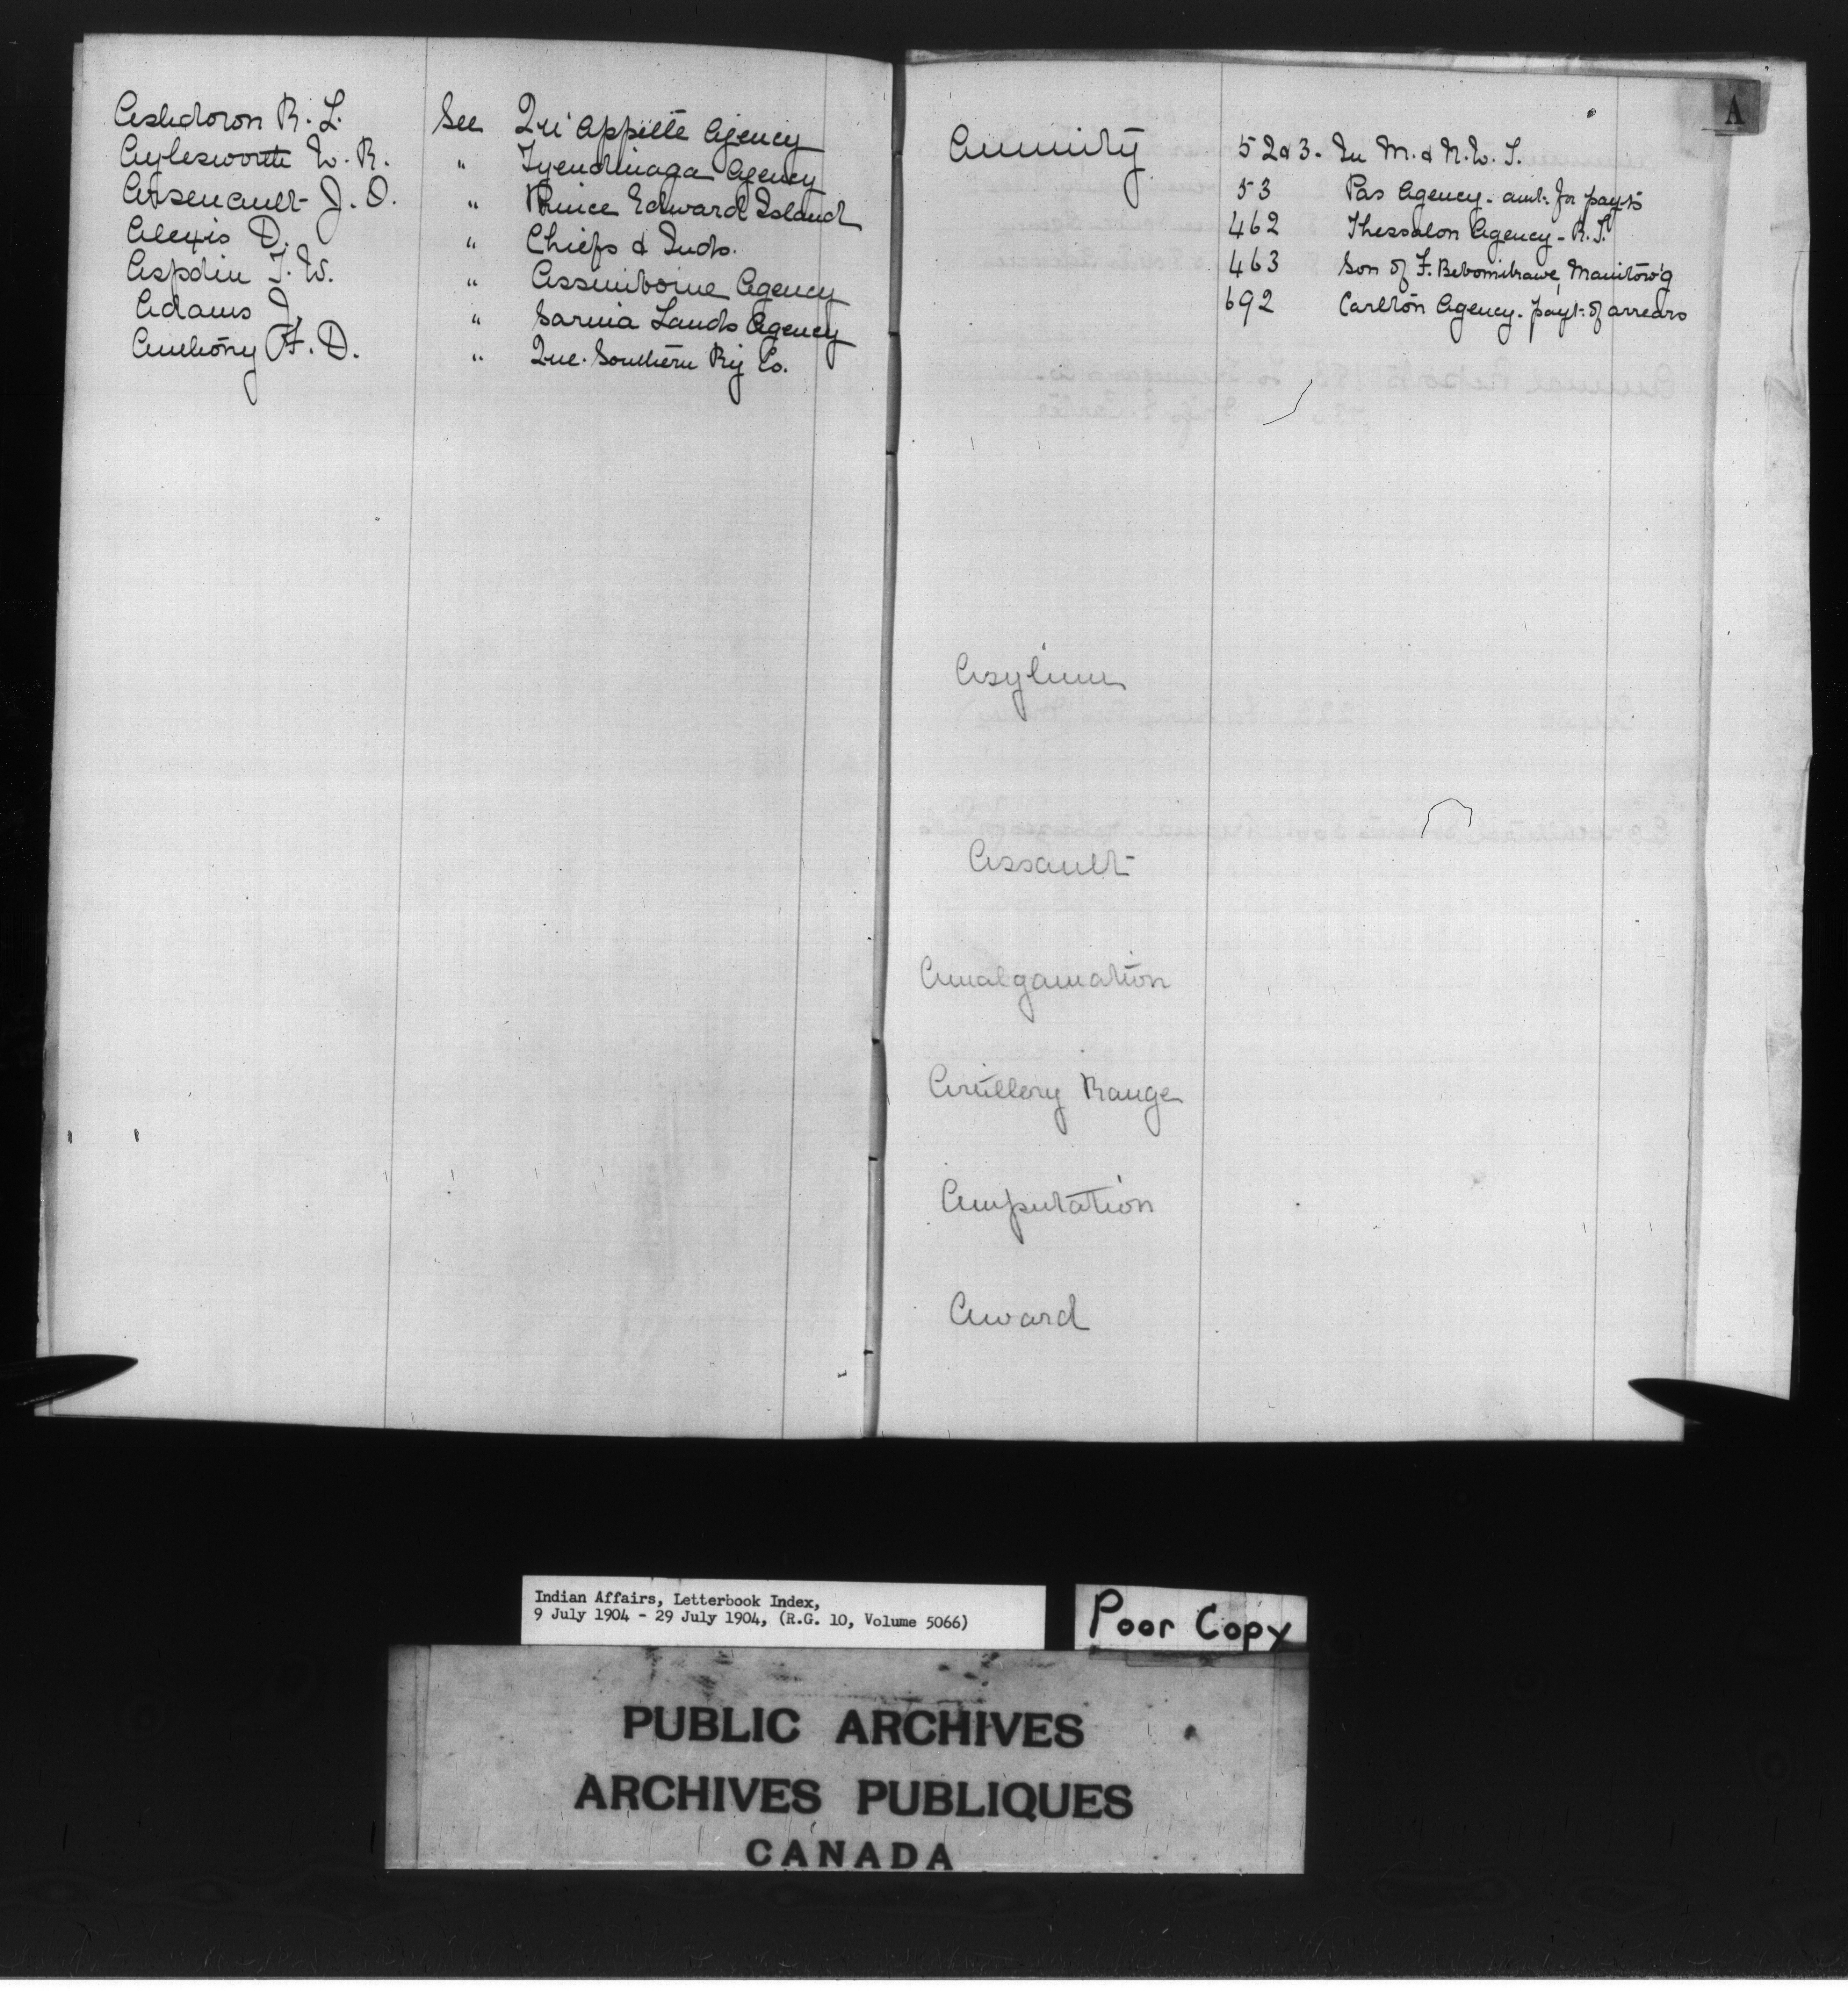 Ashdown R. L. See Qu'Appelle Agency
Aylesworth W. R. " Tyendinaga Agency
Arsenault J. O. " Prince Edward Island
Alexis D. " Chiefs & Inds.
Aspdin T. W. " Assiniboine Agency
Adams J. " Sarnia Lands Agency
Anthony F. D. " Que. Southern Ry Co.
A
Annuity 52&3. In M. & N. W. T.
53 Pas Agency - amt. for payts
462 Thessalon Agency - R. T.
463 Son of F. Manitow'g
692 Carlton Agency. payt. of arrears
Asylum
Assault
Amalgamation
Artillery Range
Amputation
Award
Indian Affairs, Letterbook Index,
9 July 1904 - 29 July 1904, (R.G. 10, Volume 5066)
Poor Copy
PUBLIC ARCHIVES
ARCHIVES PUBLIQUES
CANADA